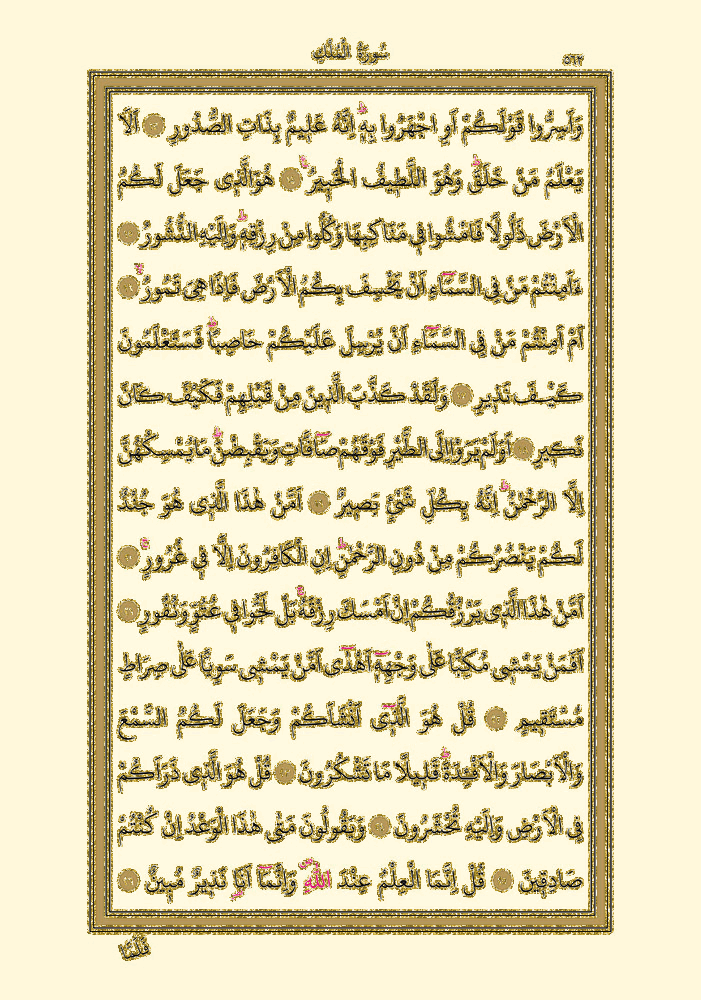 سُورَةُ الْمُلْكِ
٥٦٣
وَاَسِرُّوا قَوْلَكُمْ اَوِ اجْهَرُوا بِهٖ اِنَّهُ عَلٖيمٌ بِذَاتِ الصُّدُورِ اَلَا
يَعْلَمُ مَنْ خَلَقَ وَهُوَ اللَّطٖيفُ الْخَبٖيرُ هُوَ الَّذٖى جَعَلَ لَكُمُ
الْاَرْضَ ذَلُولًا فَامْشُوا فٖى مَنَاكِبِهَا وَكُلُوا مِنْ رِزْقِهٖ وَاِلَيْهِ النُّشُورُ
ءَاَمِنْتُمْ مَنْ فِى السَّمَاءِ اَنْ يَخْسِفَ بِكُمُ الْاَرْضَ فَاِذَا هِىَ تَمُورُ
اَمْ اَمِنْتُمْ مَنْ فِى السَّمَاءِ اَنْ يُرْسِلَ عَلَيْكُمْ حَاصِبًا فَسَتَعْلَمُونَ
كَيْفَ نَذٖيرِ وَلَقَدْ كَذَّبَ الَّذٖينَ مِنْ قَبْلِهِمْ فَكَيْفَ كَانَ
نَكٖيرِ اَوَلَمْ يَرَوْا اِلَى الطَّيْرِ فَوْقَهُمْ صَافَّاتٍ وَيَقْبِضْنَ مَا يُمْسِكُهُنَّ
اِلَّا الرَّحْمٰنُ اِنَّهُ بِكُلِّ شَىْءٍ بَصٖيرٌ اَمَّنْ هٰذَا الَّذٖى هُوَ جُنْدٌ
لَكُمْ يَنْصُرُكُمْ مِنْ دُونِ الرَّحْمٰنِ اِنِ الْكَافِرُونَ اِلَّا فٖى غُرُورٍ
اَمَّنْ هٰذَا الَّذٖى يَرْزُقُكُمْ اِنْ اَمْسَكَ رِزْقَهُ بَلْ لَجُّوا فٖى عُتُوٍّ وَنُفُورٍ
اَفَمَنْ يَمْشٖى مُكِبًّا عَلٰى وَجْهِهٖ اَهْدٰى اَمَّنْ يَمْشٖى سَوِيًّا عَلٰى صِرَاطٍ
مُسْتَقٖيمٍ قُلْ هُوَ الَّذٖى اَنْشَاَكُمْ وَجَعَلَ لَكُمُ السَّمْعَ
وَالْاَبْصَارَ وَالْاَفْـِٔدَةَ قَلٖيلًا مَا تَشْكُرُونَ قُلْ هُوَ الَّذٖى ذَرَاَكُمْ
فِى الْاَرْضِ وَاِلَيْهِ تُحْشَرُونَ وَيَقُولُونَ مَتٰى هٰذَا الْوَعْدُ اِنْ كُنْتُمْ
صَادِقٖينَ قُلْ اِنَّمَا الْعِلْمُ عِنْدَ اللّٰهِ وَاِنَّمَا اَنَا نَذٖيرٌ مُبٖينٌ
فَلَمَّا